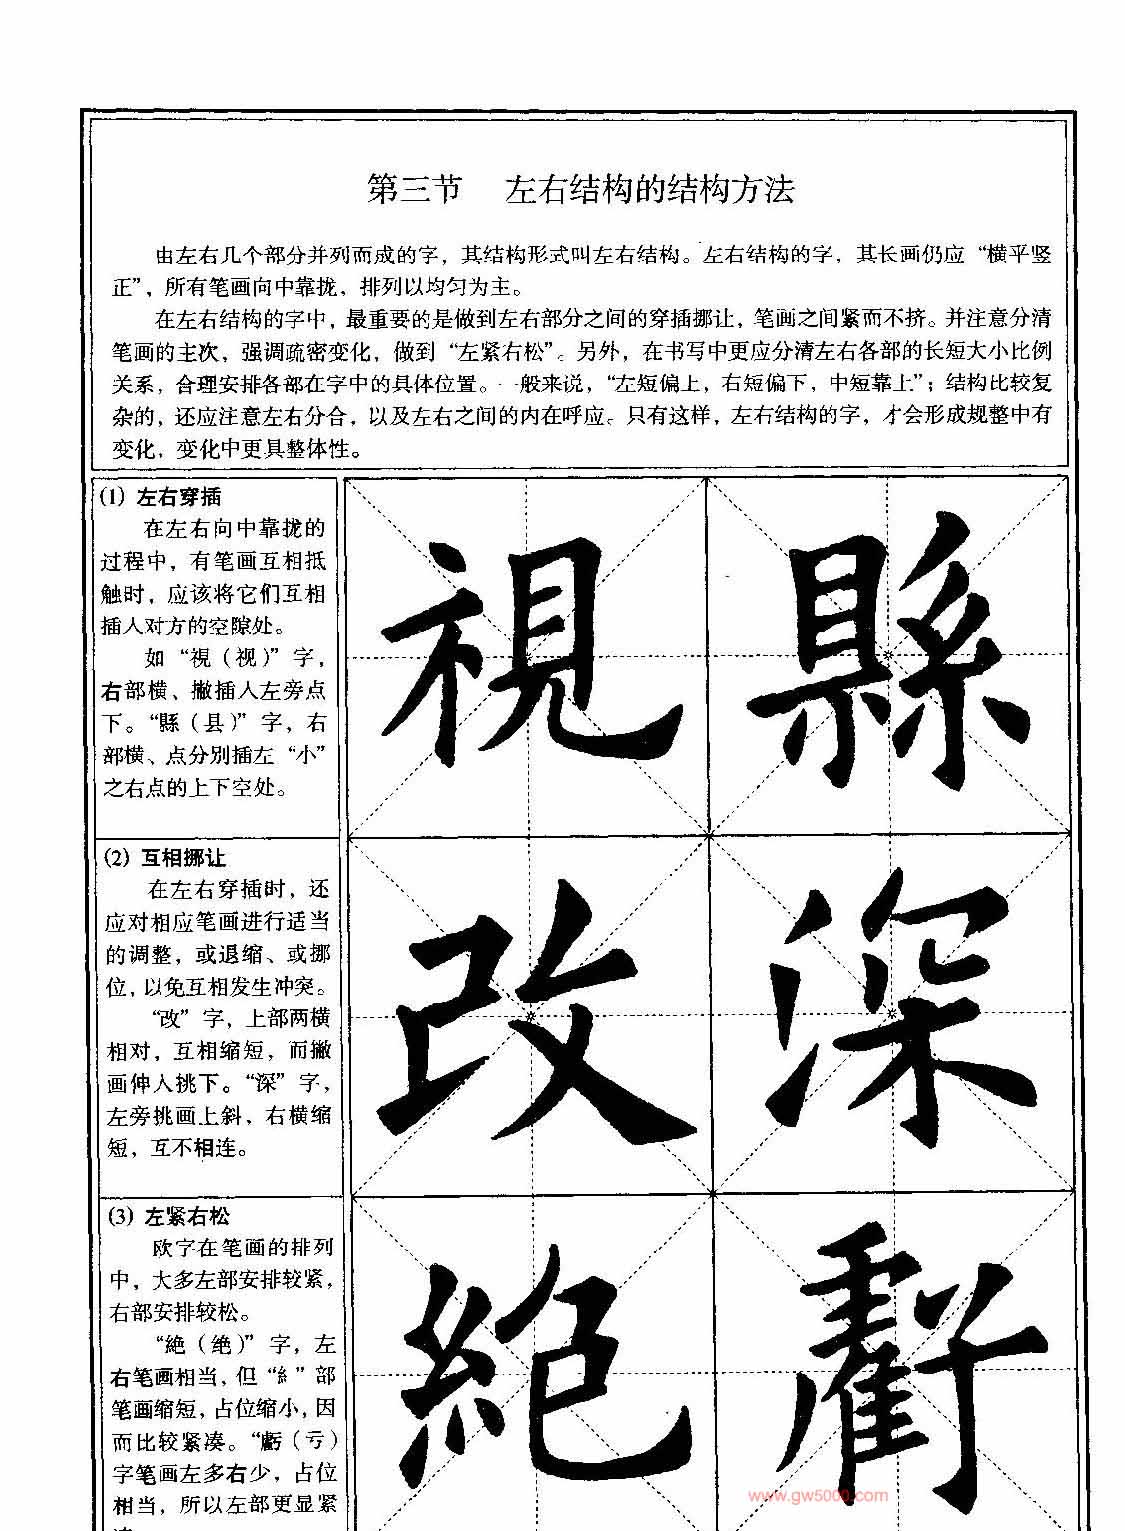 第三节 左右结构的结构方法
由左右几个部分并列而成的字，其结构形式叫左右结构。左右结构的字，其长画仍应“横平竖
正”，所有笔画向中靠拢，排列以均匀为主。
在左右结构的字中，最重要的是做到左右部分之间的穿插挪让，笔画之间紧而不挤。并注意分清
笔画的主次，强调疏密变化，做到“左紧右松”。另外，在书写中更应分清左右各部的长短大小比例
关系，合理安排各部在字中的具体位置。一般来说，“左短偏上，右短偏下，中短靠上”；结构比较复
杂的，还应注意左右分合，以及左右之间的内在呼应。只有这样，左右结构的字，才会形成规整中有
变化，变化中更具整体性。
(1) 左右穿插
在左右向中靠拢的
过程中，有笔画互相抵
触时，应该将它们互相
插入对方的空隙处。
如“視（视）”字，
右部横、撇插入左旁点
下。“縣（县）”字，右
部横、点分别插左“小”
之右点的上下空处。
視 縣
(2) 互相挪让
在左右穿插时，还
应对相应笔画进行适当
的调整，或退缩、或挪
位，以免互相发生冲突。
“改”字，上部两横
相对，互相缩短，而撇
画伸入挑下。“深”字，
左旁挑画上斜，右横缩
短，互不相连。
改 深
(3) 左紧右松
欧字在笔画的排列
中，大多左部安排较紧，
右部安排较松。
“絶（绝）”字，左
右笔画相当，但“糹”部
笔画缩短，占位缩小，因
而比较紧凑。“虧（亏）
字笔画左多右少，占位
相当，所以左部更显紧
絶 虧
www.gw5000.com